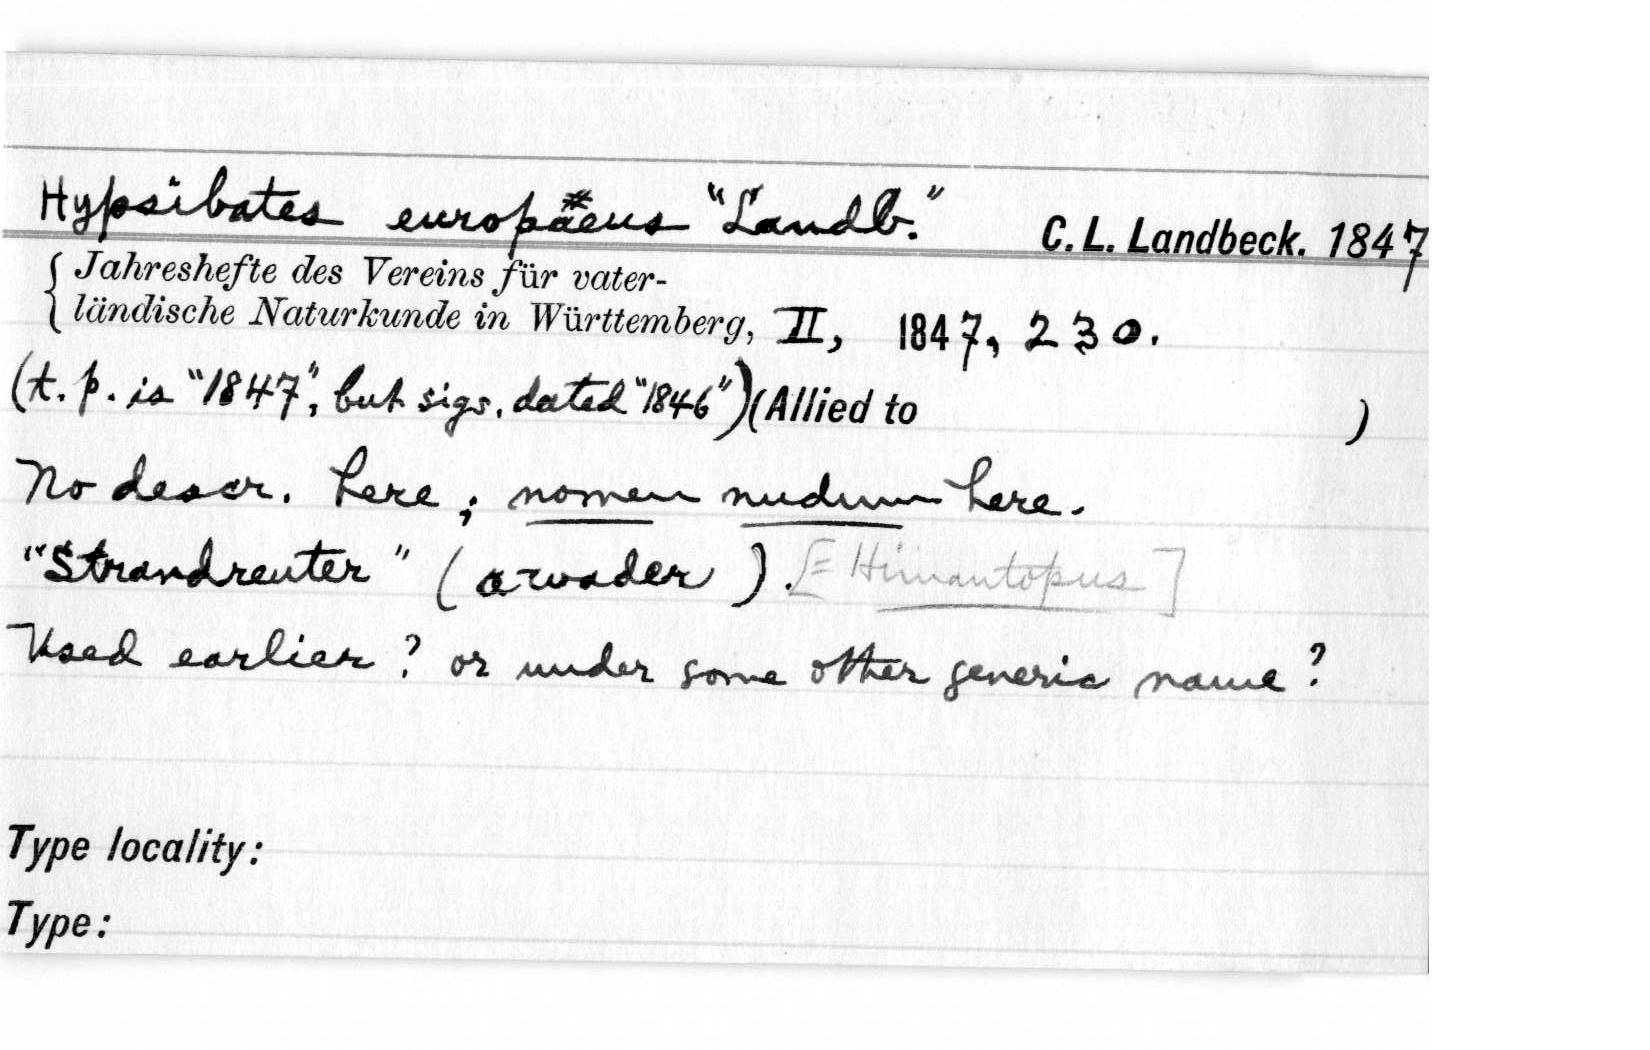 Hypsibates europaeus "Landb." C. L. Landbeck. 1847
Jahreshefte des Vereins für vater-
ländische Naturkunde in Württemberg, II, 1847, 230.
(t. p. is "1847", but sigs. dated "1846") (Allied to )
No descr. here; nomen nudum here.
"Strandreuter" (a wader). [= Himantopus]
Used earlier? or under some other generic name?
Type locality:
Type: